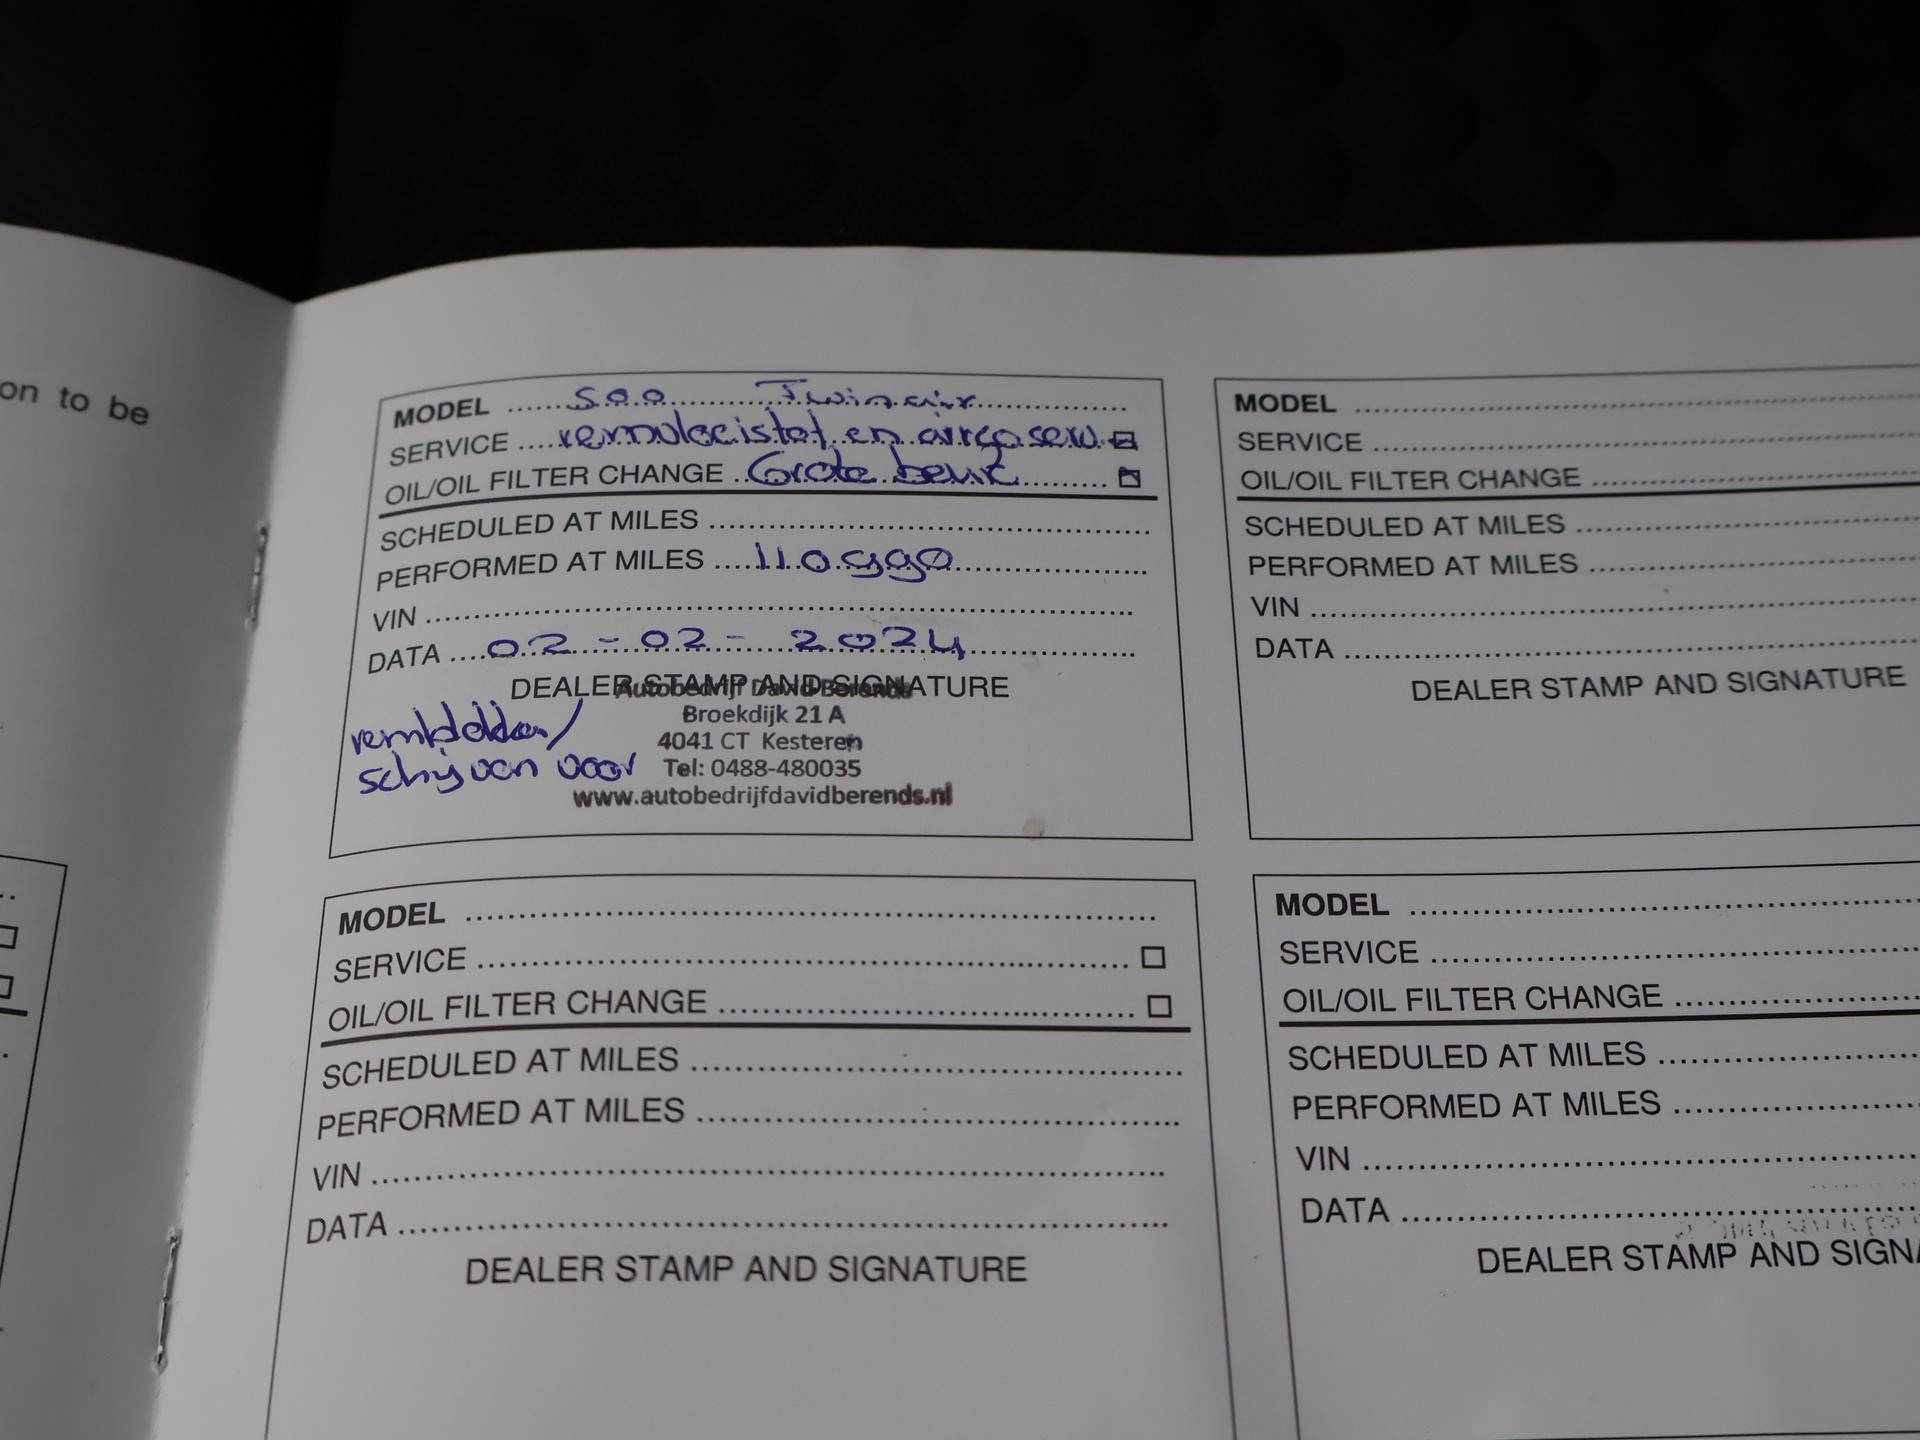 on to be
MODEL ........ 500 Twinair ........
SERVICE .... remvloeistof en airco serv. ☐
OIL/OIL FILTER CHANGE .. Grote beurt ........ ☐
SCHEDULED AT MILES ........
PERFORMED AT MILES .... 110990 ........
VIN ........
DATA .... 02-02-2024 ........
DEALER STAMP AND SIGNATURE
Autobedrijf David Berends
Broekdijk 21 A
4041 CT Kesteren
Tel: 0488-480035
www.autobedrijfdavidberends.nl
remblokken/
schijven voor
MODEL ........
SERVICE ........
OIL/OIL FILTER CHANGE ........
SCHEDULED AT MILES ........
PERFORMED AT MILES ........
VIN ........
DATA ........
DEALER STAMP AND SIGNATURE
MODEL ........
SERVICE ........ ☐
OIL/OIL FILTER CHANGE ........ ☐
SCHEDULED AT MILES ........
PERFORMED AT MILES ........
VIN ........
DATA ........
DEALER STAMP AND SIGNATURE
MODEL ........
SERVICE ........
OIL/OIL FILTER CHANGE ........
SCHEDULED AT MILES ........
PERFORMED AT MILES ........
VIN ........
DATA ........
DEALER STAMP AND SIGNA